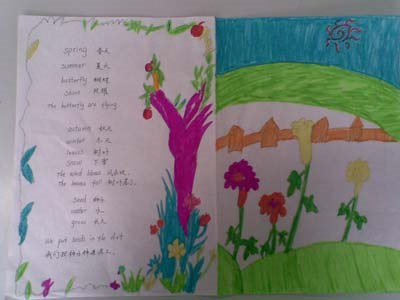 spring 春天
summer 夏天
butterfly 蝴蝶
The butterfly are flying.
autumn 秋天
winter 冬天
leaves 树叶
snow 下雪
The wind blows
The leaves fall 树叶落
seed 种子
water 水
grow
We put seeds in the dirt
我们把种子种进泥土.